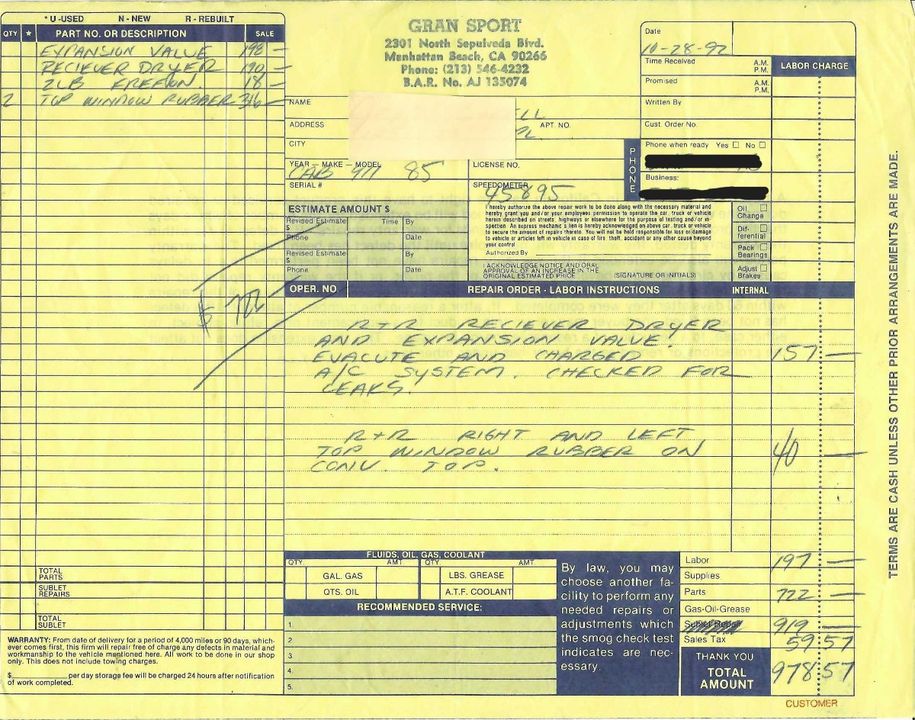 * U - USED N - NEW R - REBUILT
QTY * PART NO. OR DESCRIPTION SALE
EXPANSION VALUE 198 —
RECIEVER DRYER 190 —
2LB FREEON 18 —
2 TOP WINDOW RUBBER 316 —
TOTAL PARTS
SUBLET REPAIRS
TOTAL SUBLET
WARRANTY: From date of delivery for a period of 4,000 miles or 90 days, which-
ever comes first, this firm will repair free of charge any defects in material and
workmanship to the vehicle mentioned here. All work to be done in our shop
only. This does not include towing charges.
$ per day storage fee will be charged 24 hours after notification
of work completed.
GRAN SPORT
2301 North Sepulveda Blvd.
Manhattan Beach, CA 90266
Phone: (213) 546-4232
B.A.R. No. AJ 135074
Date
10-28-92
Time Received A.M. P.M.
Promised A.M. P.M.
Written By
Cust. Order No.
LABOR CHARGE
NAME
ADDRESS APT. NO.
CITY
PHONE
Phone when ready Yes No
Business:
YEAR — MAKE — MODEL LICENSE NO.
CAB 911 85
SERIAL # SPEEDOMETER
45895
ESTIMATE AMOUNT $
Revised Estimate $ Time By
Phone Date
Revised Estimate $ By
Phone Date
I hereby authorize the above repair work to be done along with the necessary material and
hereby grant you and/or your employees permission to operate the car, truck or vehicle
herein described on streets, highways or elsewhere for the purpose of testing and/or in-
spection. An express mechanic's lien is hereby acknowledged on above car, truck or vehicle
to secure the amount of repairs thereto. You will not be held responsible for loss or damage
to vehicle or articles left in vehicle in case of fire, theft, accident or any other cause beyond
your control
Authorized By
I ACKNOWLEDGE NOTICE AND ORAL
APPROVAL OF AN INCREASE IN THE
ORIGINAL ESTIMATED PRICE (SIGNATURE OR INITIALS)
Oil Change
Dif- ferential
Pack Bearings
Adjust Brakes
OPER. NO REPAIR ORDER - LABOR INSTRUCTIONS INTERNAL
$ 722
R+R RECIEVER DRYER
AND EXPANSION VALUE.
EVACUTE AND CHARGED 157 —
A/C SYSTEM. CHECKED FOR
LEAKS.
R+R RIGHT AND LEFT
TOP WINDOW RUBBER ON 40 —
CONV. TOP.
FLUIDS, OIL, GAS, COOLANT
QTY. AMT QTY. AMT.
GAL. GAS LBS. GREASE
QTS. OIL A.T.F. COOLANT
RECOMMENDED SERVICE:
1.
2.
3.
4.
5.
By law, you may
choose another fa-
cility to perform any
needed repairs or
adjustments which
the smog check test
indicates are nec-
essary.
Labor 197 —
Supplies
Parts 722 —
Gas-Oil-Grease
919 —
Sales Tax 59 57
THANK YOU
TOTAL AMOUNT 978 57
CUSTOMER
TERMS ARE CASH UNLESS OTHER PRIOR ARRANGEMENTS ARE MADE.